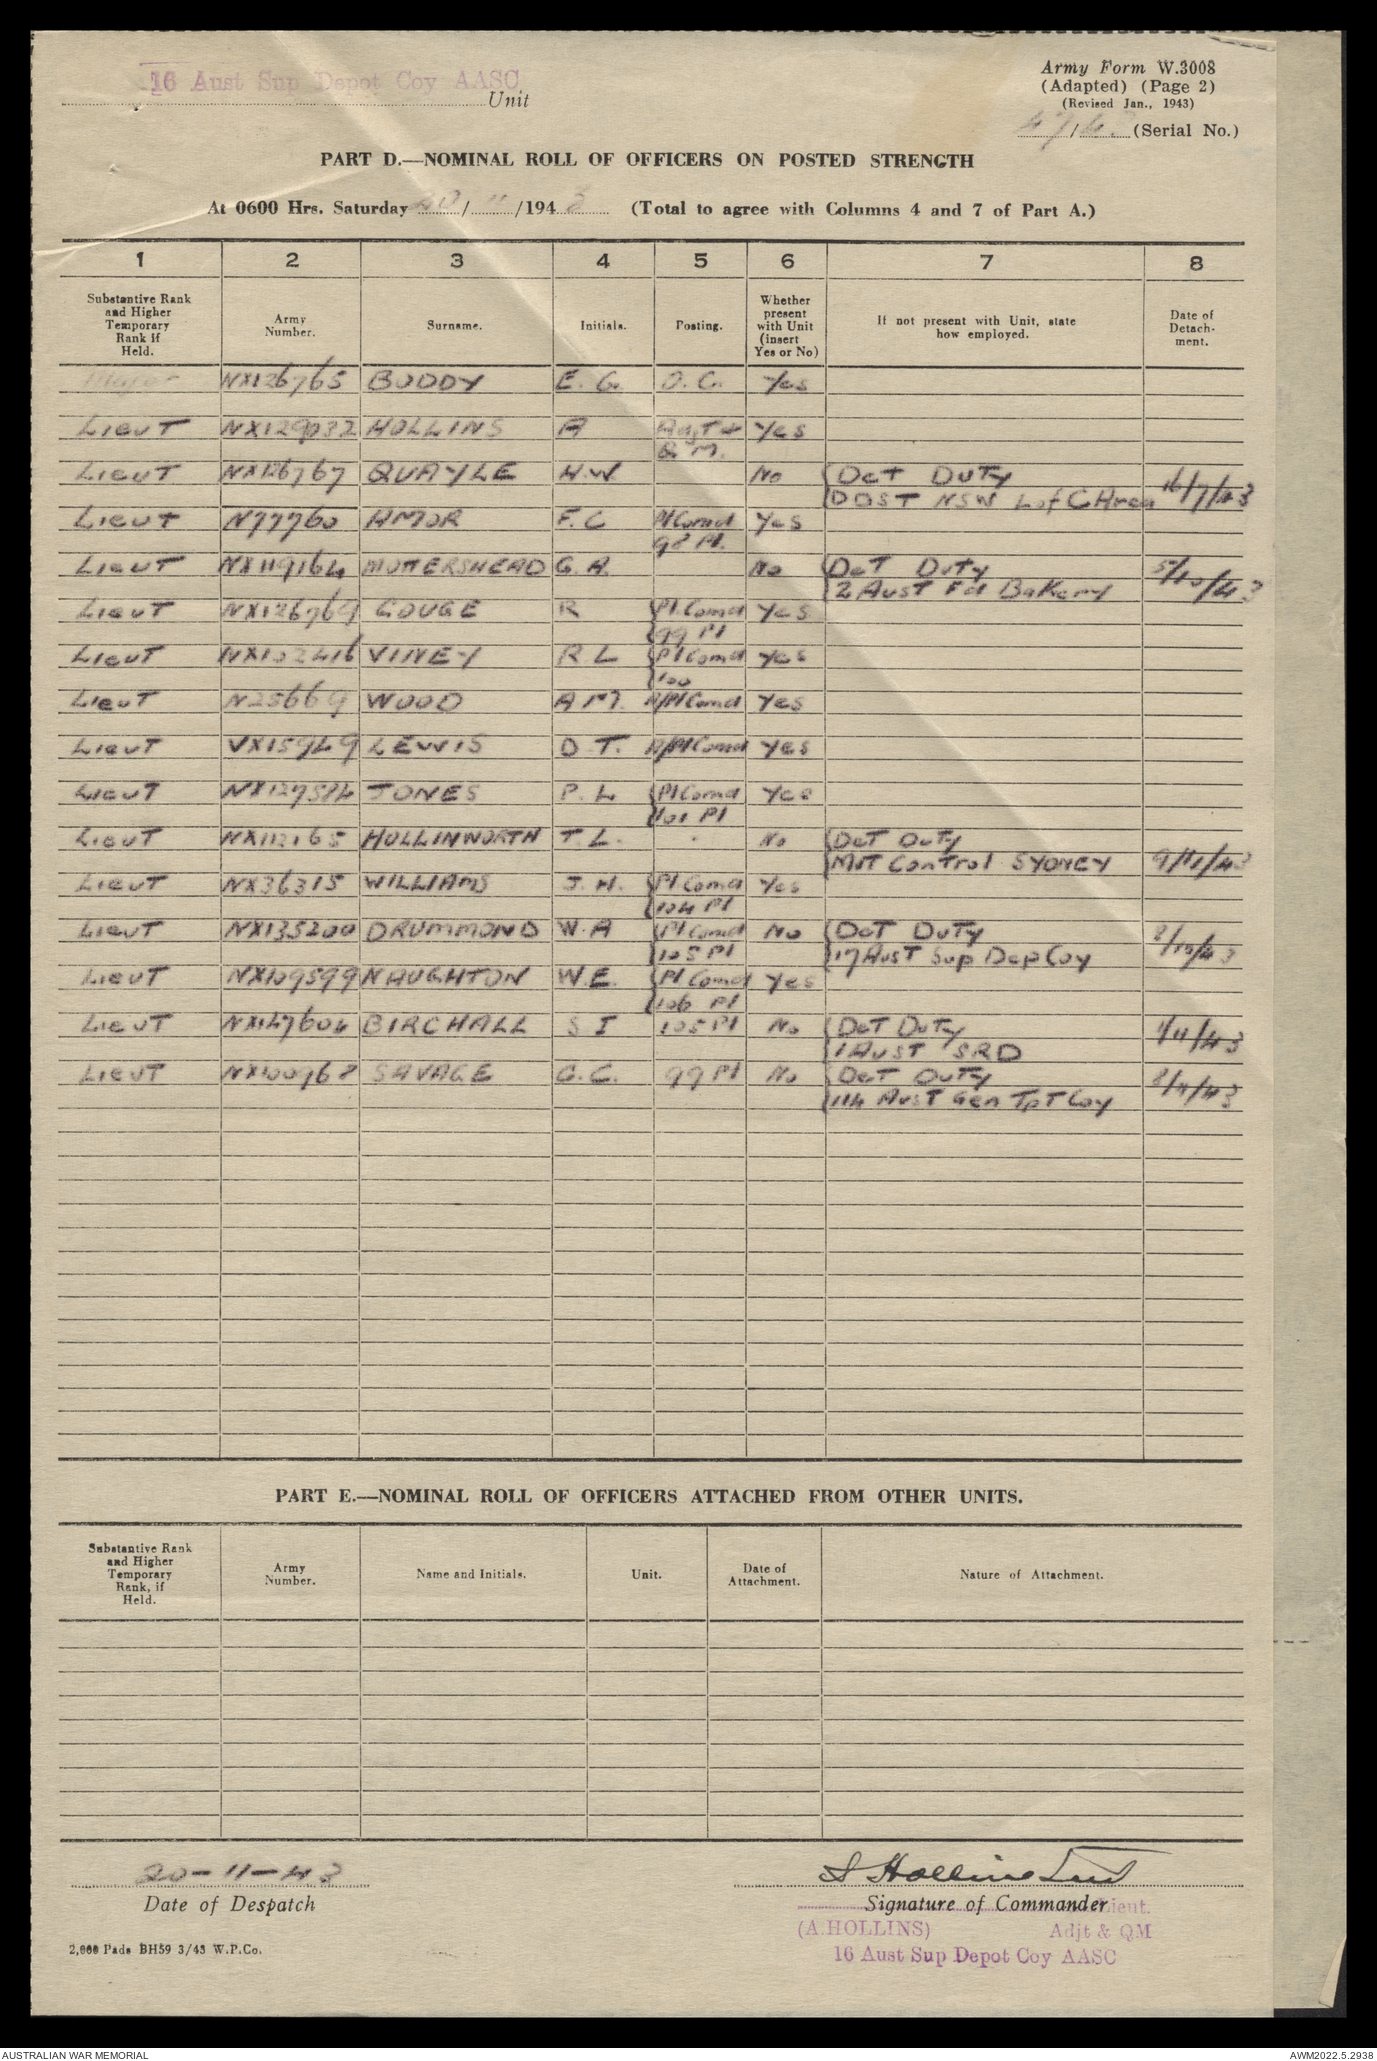 16 Aust Sup Depot Coy AASC
Unit
Army Form W.3008
(Adapted) (Page 2)
(Revised Jan., 1943)
47/43 (Serial No.)
PART D.—NOMINAL ROLL OF OFFICERS ON POSTED STRENGTH
At 0600 Hrs. Saturday 20/11/1943 (Total to agree with Columns 4 and 7 of Part A.)
1 2 3 4 5 6 7 8
Substantive Rank and Higher Temporary Rank if Held. Army Number. Surname. Initials. Posting. Whether present with Unit (insert Yes or No) If not present with Unit, state how employed. Date of Detach-ment.
Major NX126765 BODDY E. G. O. C. Yes
Lieut NX129032 HOLLINS A Adjt & Yes
Q M.
Lieut NX126767 QUAYLE H.W No Det Duty 16/7/43
DDST NSW L of C Area
Lieut N77760 AMOR F. C Pl Comd Yes
98 Pl.
Lieut NX119164 MOTTERSHEAD G. A. No Det Duty 5/10/43
2 Aust Fd Bakery
Lieut NX126769 GOUGE R Pl Comd Yes
99 Pl
Lieut NX102416 VINEY R L Pl Comd Yes
100
Lieut N25669 WOOD A M. Pl Comd Yes
Lieut VX15949 LEWIS D T. Pl Comd Yes
Lieut NX127584 JONES P. L Pl Comd Yes
101 Pl
Lieut NX112165 HOLLINWORTH T. L. No Det Duty
Mvt Control SYDNEY 9/11/43
Lieut NX36315 WILLIAMS J. H. Pl Comd Yes
104 Pl
Lieut NX135200 DRUMMOND W. A Pl Comd No Det Duty 8/10/43
105 Pl 17 Aust Sup Dep Coy
Lieut NX109599 NAUGHTON W. E. Pl Comd Yes
106 Pl
Lieut NX147604 BIRCHALL S I 105 Pl No Det Duty 1/11/43
1 Aust SRD
Lieut NX100968 SAVAGE G. C. 99 Pl No Det Duty 8/11/43
114 Aust Gen Tpt Coy
PART E.—NOMINAL ROLL OF OFFICERS ATTACHED FROM OTHER UNITS.
Substantive Rank and Higher Temporary Rank, if Held. Army Number. Name and Initials. Unit. Date of Attachment. Nature of Attachment.
20-11-43 A Hollins Lieut
Date of Despatch Signature of Commander Lieut.
(A.HOLLINS) Adjt & QM
16 Aust Sup Depot Coy AASC
2,000 Pads BH59 3/43 W.P.Co.
AUSTRALIAN WAR MEMORIAL AWM2022.5.2938